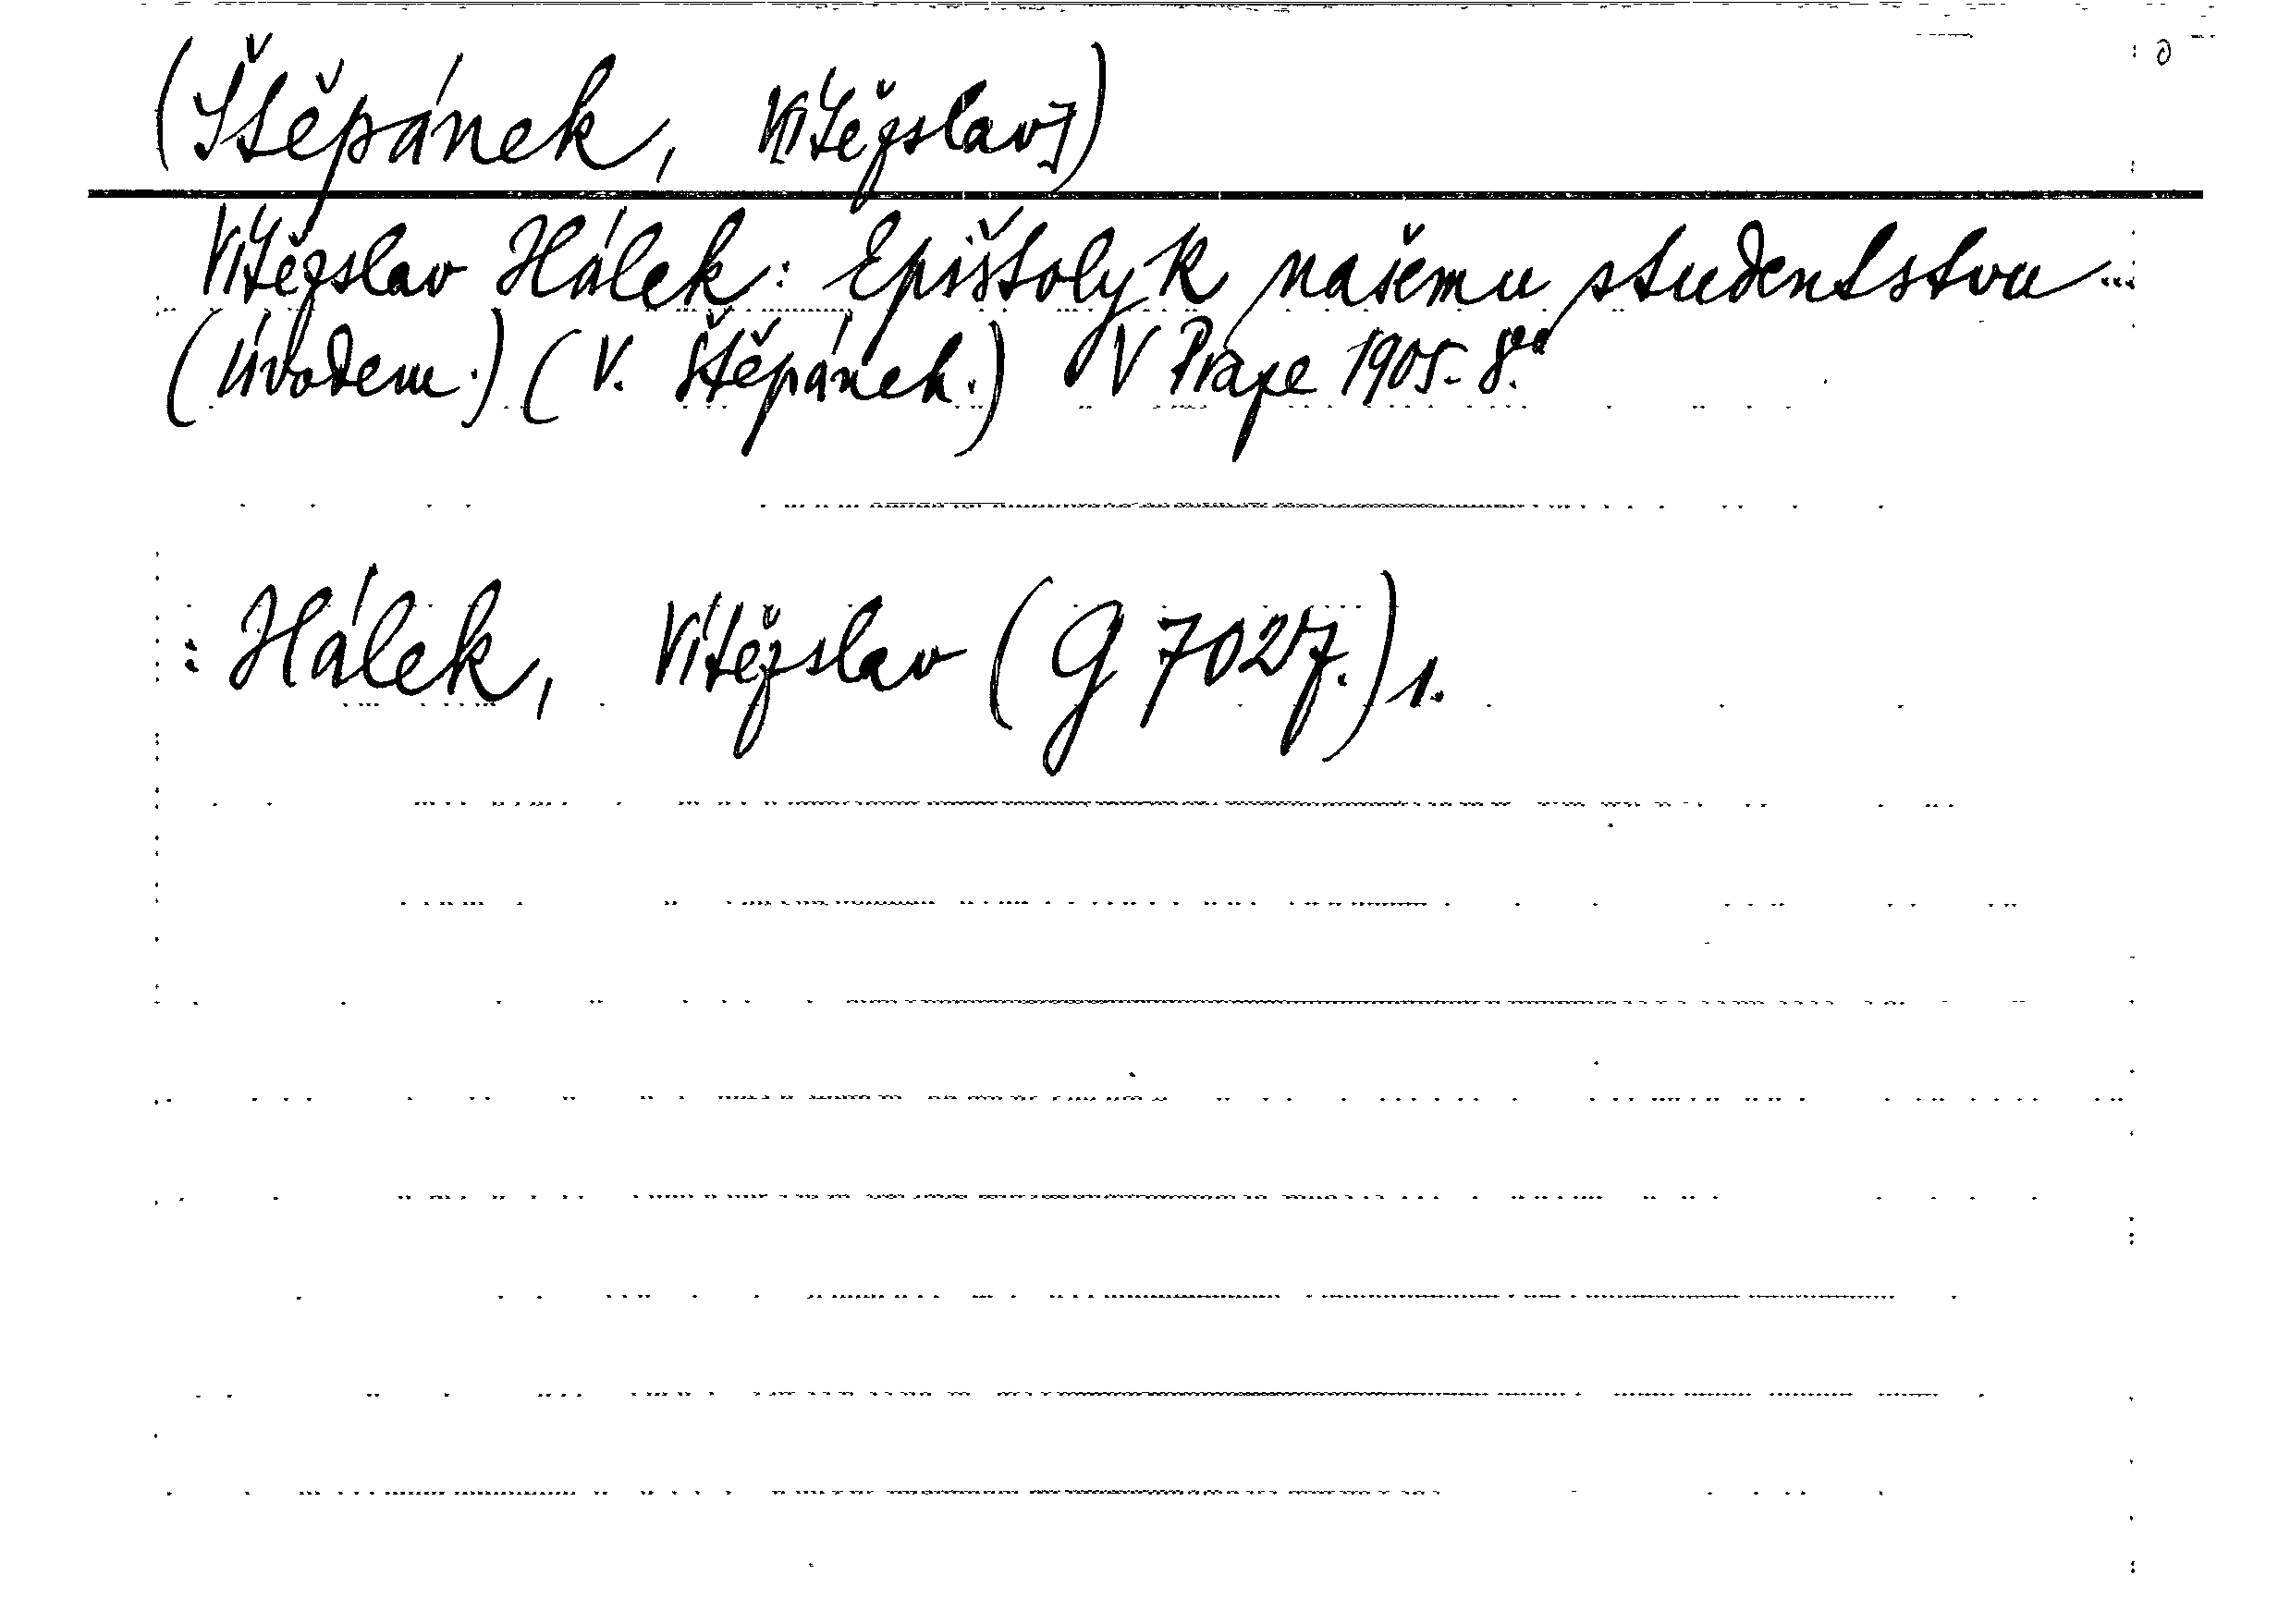 (Štěpánek, Vítězslav])
Vítězslav Hálek: Epištoly k našemu studentstvu...
(Úvodem.) (V. Štěpánek.) V Praze 1905. 8.°
: Hálek, Vítězslav (G 7027.) 1.